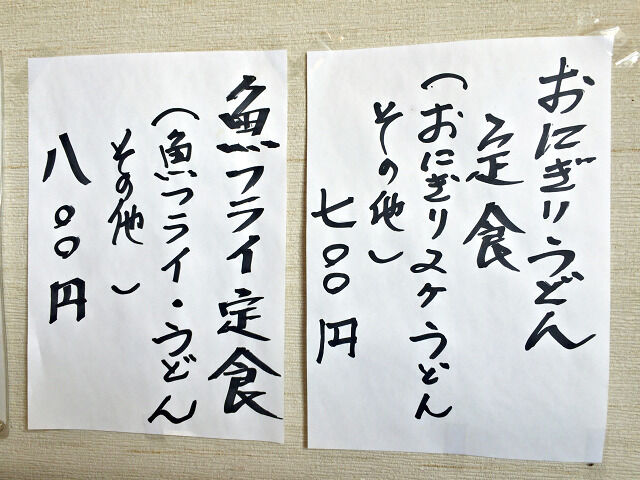 おにぎりうどん
定食
(おにぎり2ケうどん
その他)
七〇〇円
魚フライ定食
(魚フライ・うどん
その他)
八〇〇円